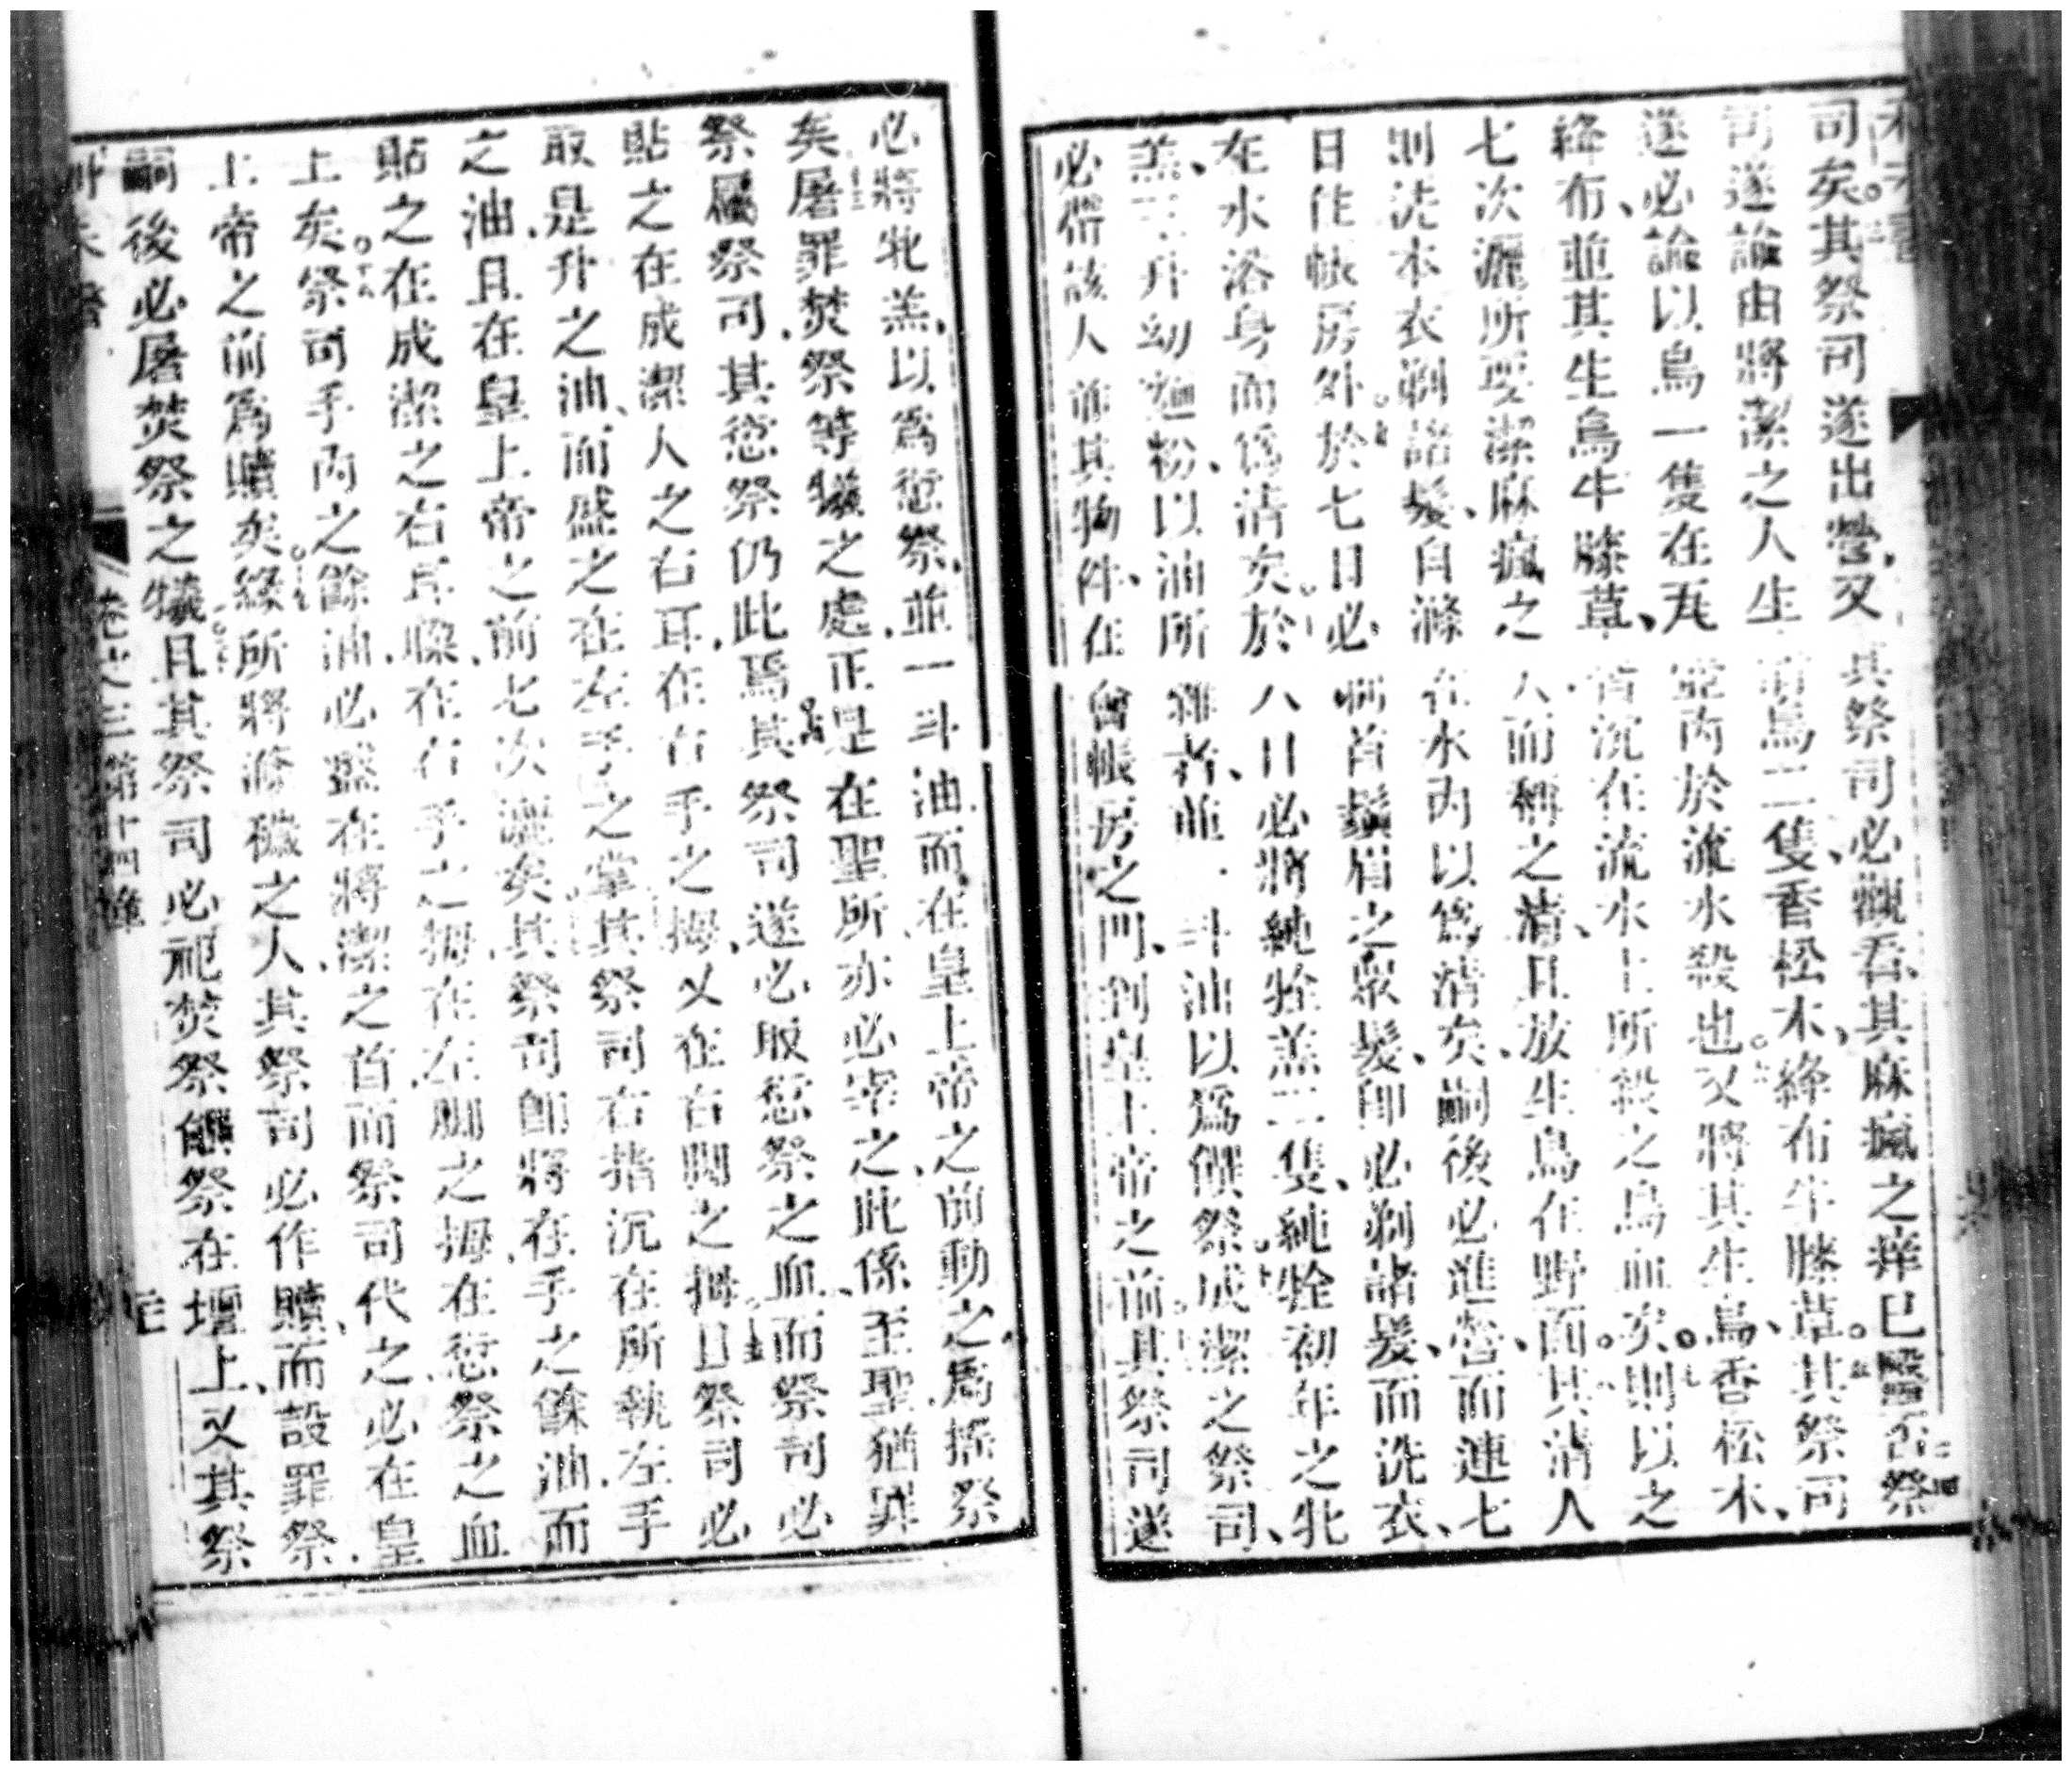 司矣其祭司遂出營又其祭司必觀看其麻瘋之痒已醫否祭
司遂諭由將潔之人生清鳥二隻香松木絳布牛膝草其祭司
遂必諭以鳥一隻在瓦壺內於流水殺也又將其生鳥香松木
絳布並其生鳥牛膝草皆沉在流水上所殺之鳥血矣則以之
七次灑所要潔麻瘋之人而稱之清且放生鳥在野面其清人
則洗本衣剃諸髮自滌在水內以為清矣嗣後必進營而連七
日住帳房外於七日必剃首鬚眉之眾髮即必剃諸髮而洗衣
在水浴身而為清矣於八日必將純牷羔二隻純牷初年之牝
羔三升幼麵粉以油所雜者並一斗油以為饌祭成潔之祭司
必帶該人並其物件在會帳房之門到皇上帝之前其祭司遂
必將牝羔以為愆祭並一斗油而在皇上帝之前動之爲搖祭
矣屠罪焚祭等犧之處正是在聖所亦必宰之此係至聖猶罪
祭屬祭司其愆祭仍此焉其祭司遂必取愆祭之血而祭司必
貼之在成潔人之右耳在右手之拇又在右腳之拇且祭司必
取是升之油而盛之在左手之掌其祭司右指沉在所執左手
之油且在皇上帝之前七次灑矣其祭司即將在手之餘油而
貼之在成潔之右耳朶在右手之拇在左脚之拇在愆祭之血
上矣祭司手內之餘油必盪在將潔之首而祭司代之必在皇
上帝之前爲贖矣緣所將滌穢之人其祭司必作贖而設罪祭
嗣後必屠焚祭之犧且其祭司必祀焚祭饌祭在壇上又其祭
卷之三第十四章